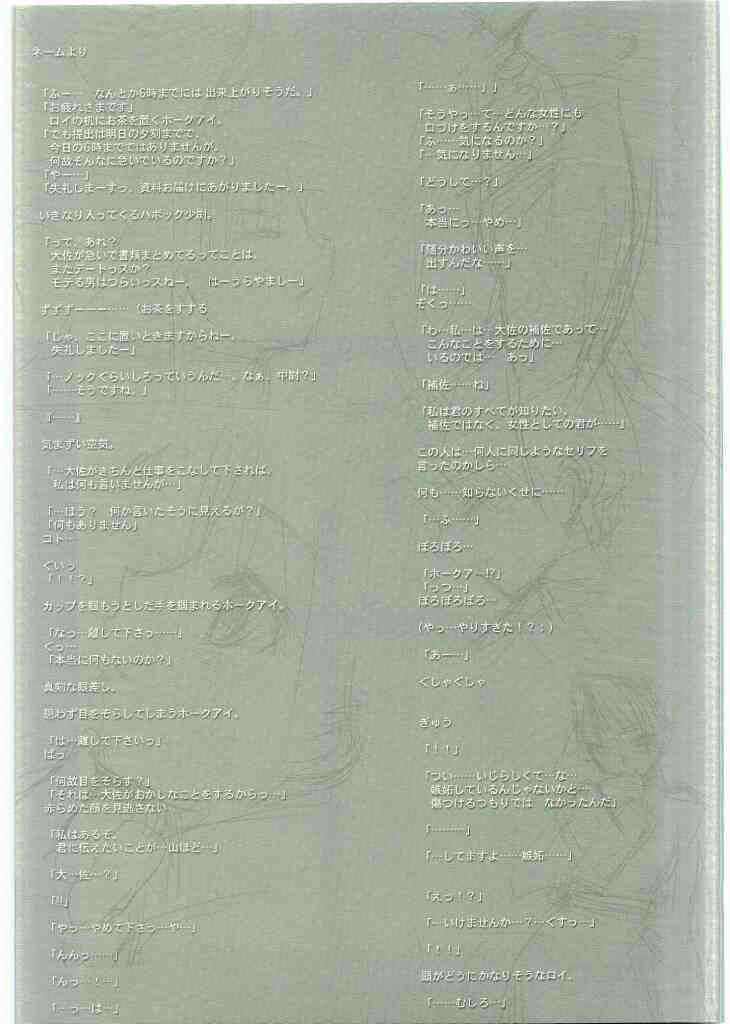 ネームより
「ふー… なんとか6時までには 出来上がりそうだ。」
「お疲れさまです」
ロイの机にお茶を置くホークアイ。
「でも提出は明日の夕刻までで、
今日の6時まてではありませんが。
何故そんなに急いでいるのですか？」
「やー…」
「失礼しまーすっ、資料お届けにあがりましたー。」
いきなり入ってくるハボック少尉。
「って、あれ？
大佐が急いで書類まとめてるってことは、
またデートっスか？
モテる男はつらいっスねー。 はーうらやましー」
ずずずーーー……（お茶をすする
「じゃ、ここに置いときますからねー。
失礼しましたー」
「…ノックぐらいしろっていうんだ…。なぁ、中尉？」
「……そうですね。」
「……」
気まずい空気。
「…大佐がきちんと仕事をこなして下されば、
私は何も言いませんが…」
「…ほう？ 何か言いたそうに見えるが？」
「何もありません」
コト…
ぐいっ
「！！？」
カップを掴もうとした手を掴まれるホークアイ。
「なっ…離して下さっ……」
くっ…
「本当に何もないのか？」
真剣な眼差し。
思わず目をそらしてしまうホークアイ。
「は…離して下さいっ」
ばっ
「何故目をそらす？」
「それは…大佐がおかしなことをするからっ…」
赤らめた顔を見逃さない
「私はあるぞ。
君に伝えたいことが…山ほど…」
「大…佐…？」
「!!」
「やっ…やめて下さっ…や…」
「んんっ……」
「んっ…！…」
「…っ…は…」
「……ぁ……」」
「そうやっ…て…どんな女性にも
口づけをするんですか…？」
「ふ……気になるのか？」
「…気になりません…」
「どうして…？」
「あっ…
本当にっ…やめ…」
「随分かわいい声を…
出すんだな……」
「は……」
ぞくっ……
「わ…私…は…大佐の補佐であって…
こんなことをするために…
いるのでは… あっ」
「補佐……ね」
「私は君のすべてが知りたい。
補佐ではなく、女性としての君が……」
この人は…何人に同じようなセリフを
言ったのかしら…
何も……知らないくせに……
「…ふ……」
ぽろぽろ…
「ホークアー!?」
「っっ…」
ぽろぽろぽろ…
（やっ…やりすぎた！？；）
「あー…」
くしゃくしゃ
ぎゅう
「！！」
「つい……いじらしくて…な…
嫉妬しているんじゃないかと…
傷つけるつもりでは なかったんだ」
「………」
「…してますよ……嫉妬……」
「えっ！？」
「…いけませんか…？…ぐすっ…」
「！！」
頭がどうにかなりそうなロイ。
「……むしろ…」